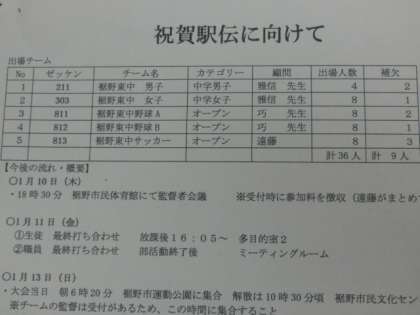 祝賀駅伝に向けて
出場チーム
No ゼッケン チーム名 カテゴリー 顧問 出場人数 補欠
1 211 裾野東中 男子 中学男子 雅信 先生 4 2
2 303 裾野東中 女子 中学女子 雅信 先生 8 1
3 811 裾野東中野球A オープン 巧 先生 8 2
4 812 裾野東中野球B オープン 巧 先生 8 1
5 813 裾野東中サッカー オープン 遠藤 8 3
計36人 計 9人
【今後の流れ・概要】
○1月10日(木)
・18時30分 裾野市民体育館にて監督者会議 ※受付時に参加料を徴収(遠藤がまとめ
○1月11日(金)
①生徒 最終打ち合わせ 放課後16:05~ 多目的室2
②職員 最終打ち合わせ 部活動終了後 ミーティングルーム
○1月13日(日)
・大会当日 朝6時20分 裾野市運動公園に集合 解散は10時30分頃 裾野市民文化セン
※チームの監督は受付があるため、この時間に集合すること